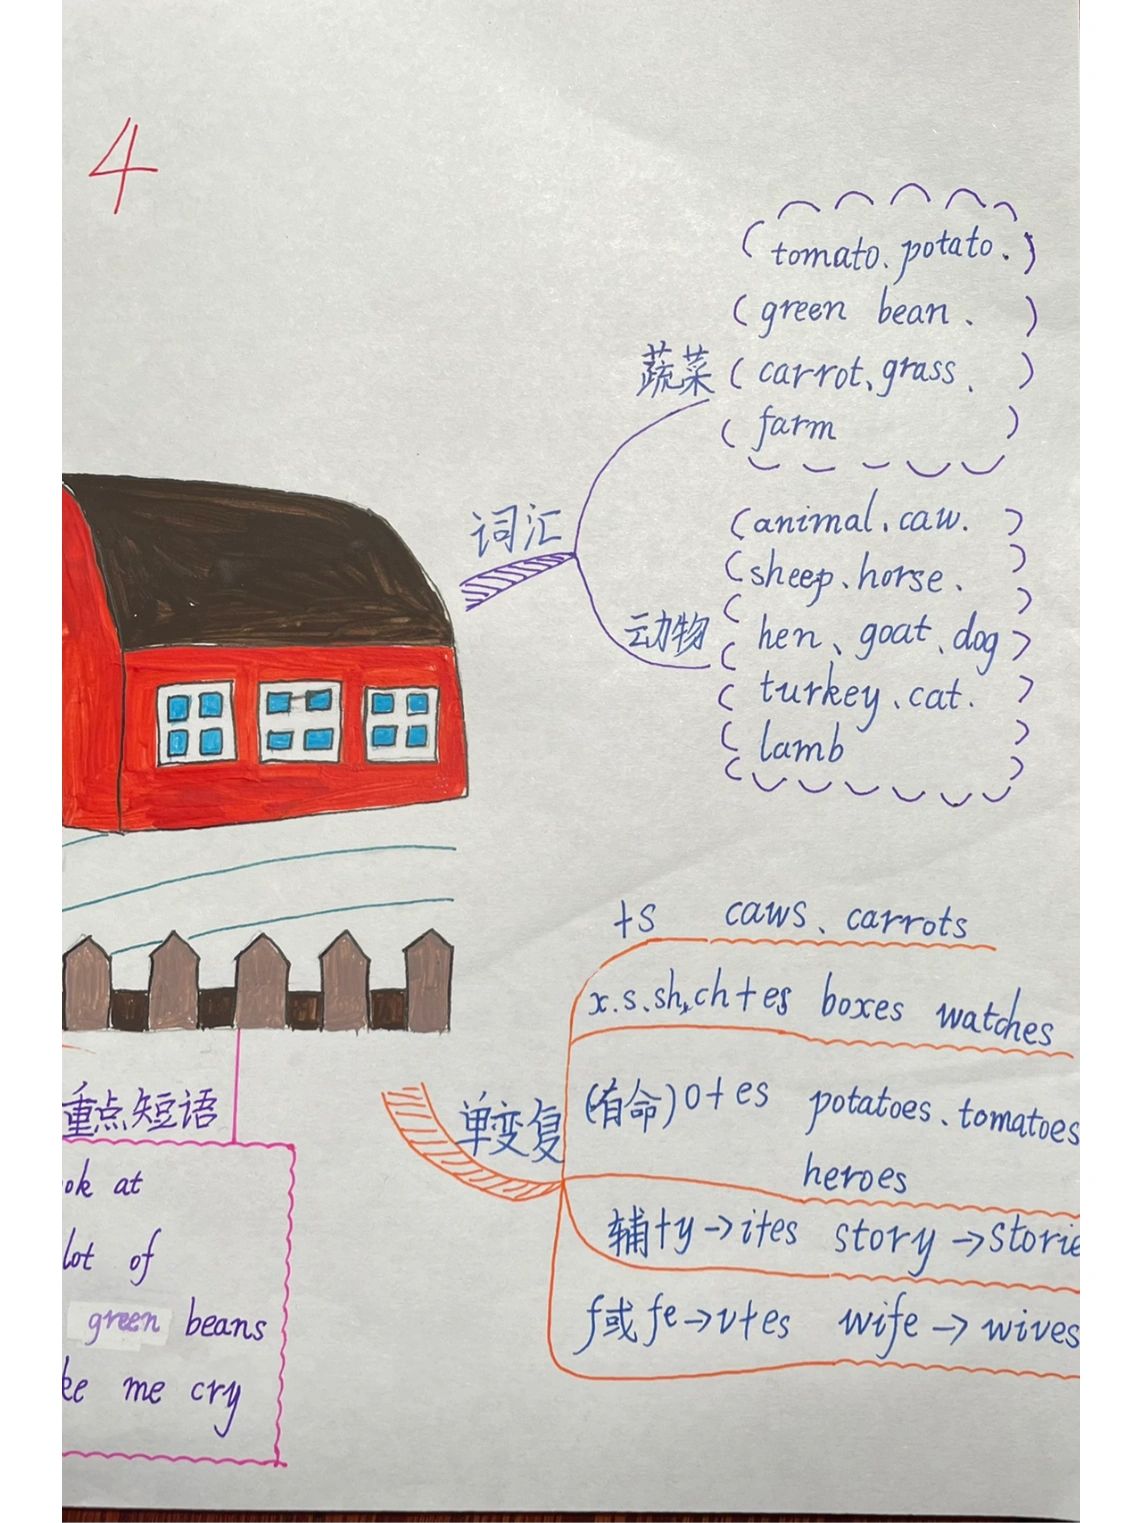 4
tomato、potato、
green bean、
蔬菜
carrot、grass、
farm
词汇
animal、caw.
sheep、horse、
动物
hen、goat、dog
turkey、cat.
lamb
+s caws、carrots
x.s.sh,ch+es boxes watches
单变复
(有命)o+es potatoes、tomatoes
heroes
辅+y→i+es story→storie
f或fe→v+es wife→wives
重点短语
ok at
lot of
green beans
ke me cry